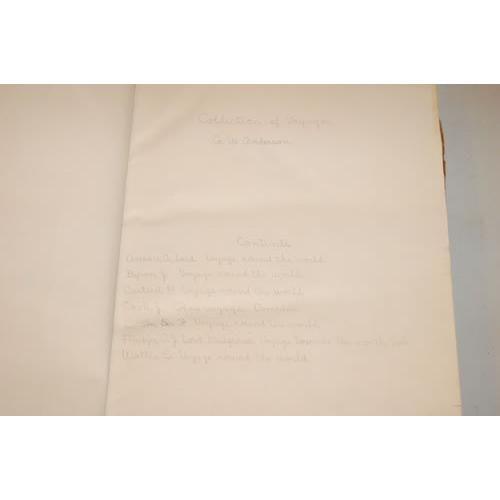 Collection of Voyages
G. W. Anderson
Contents
Anson G. Lord Voyage round the world
Byron J. Voyage round the world
Carteret P. Voyage round the world
Cook J. voyages
Voyage round the world
Phipps C. J. Lord Mulgrave Voyage towards the north pole
Wallis S. Voyage round the world